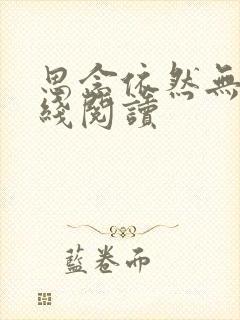 思念依然無
綫閱讀
藍卷而